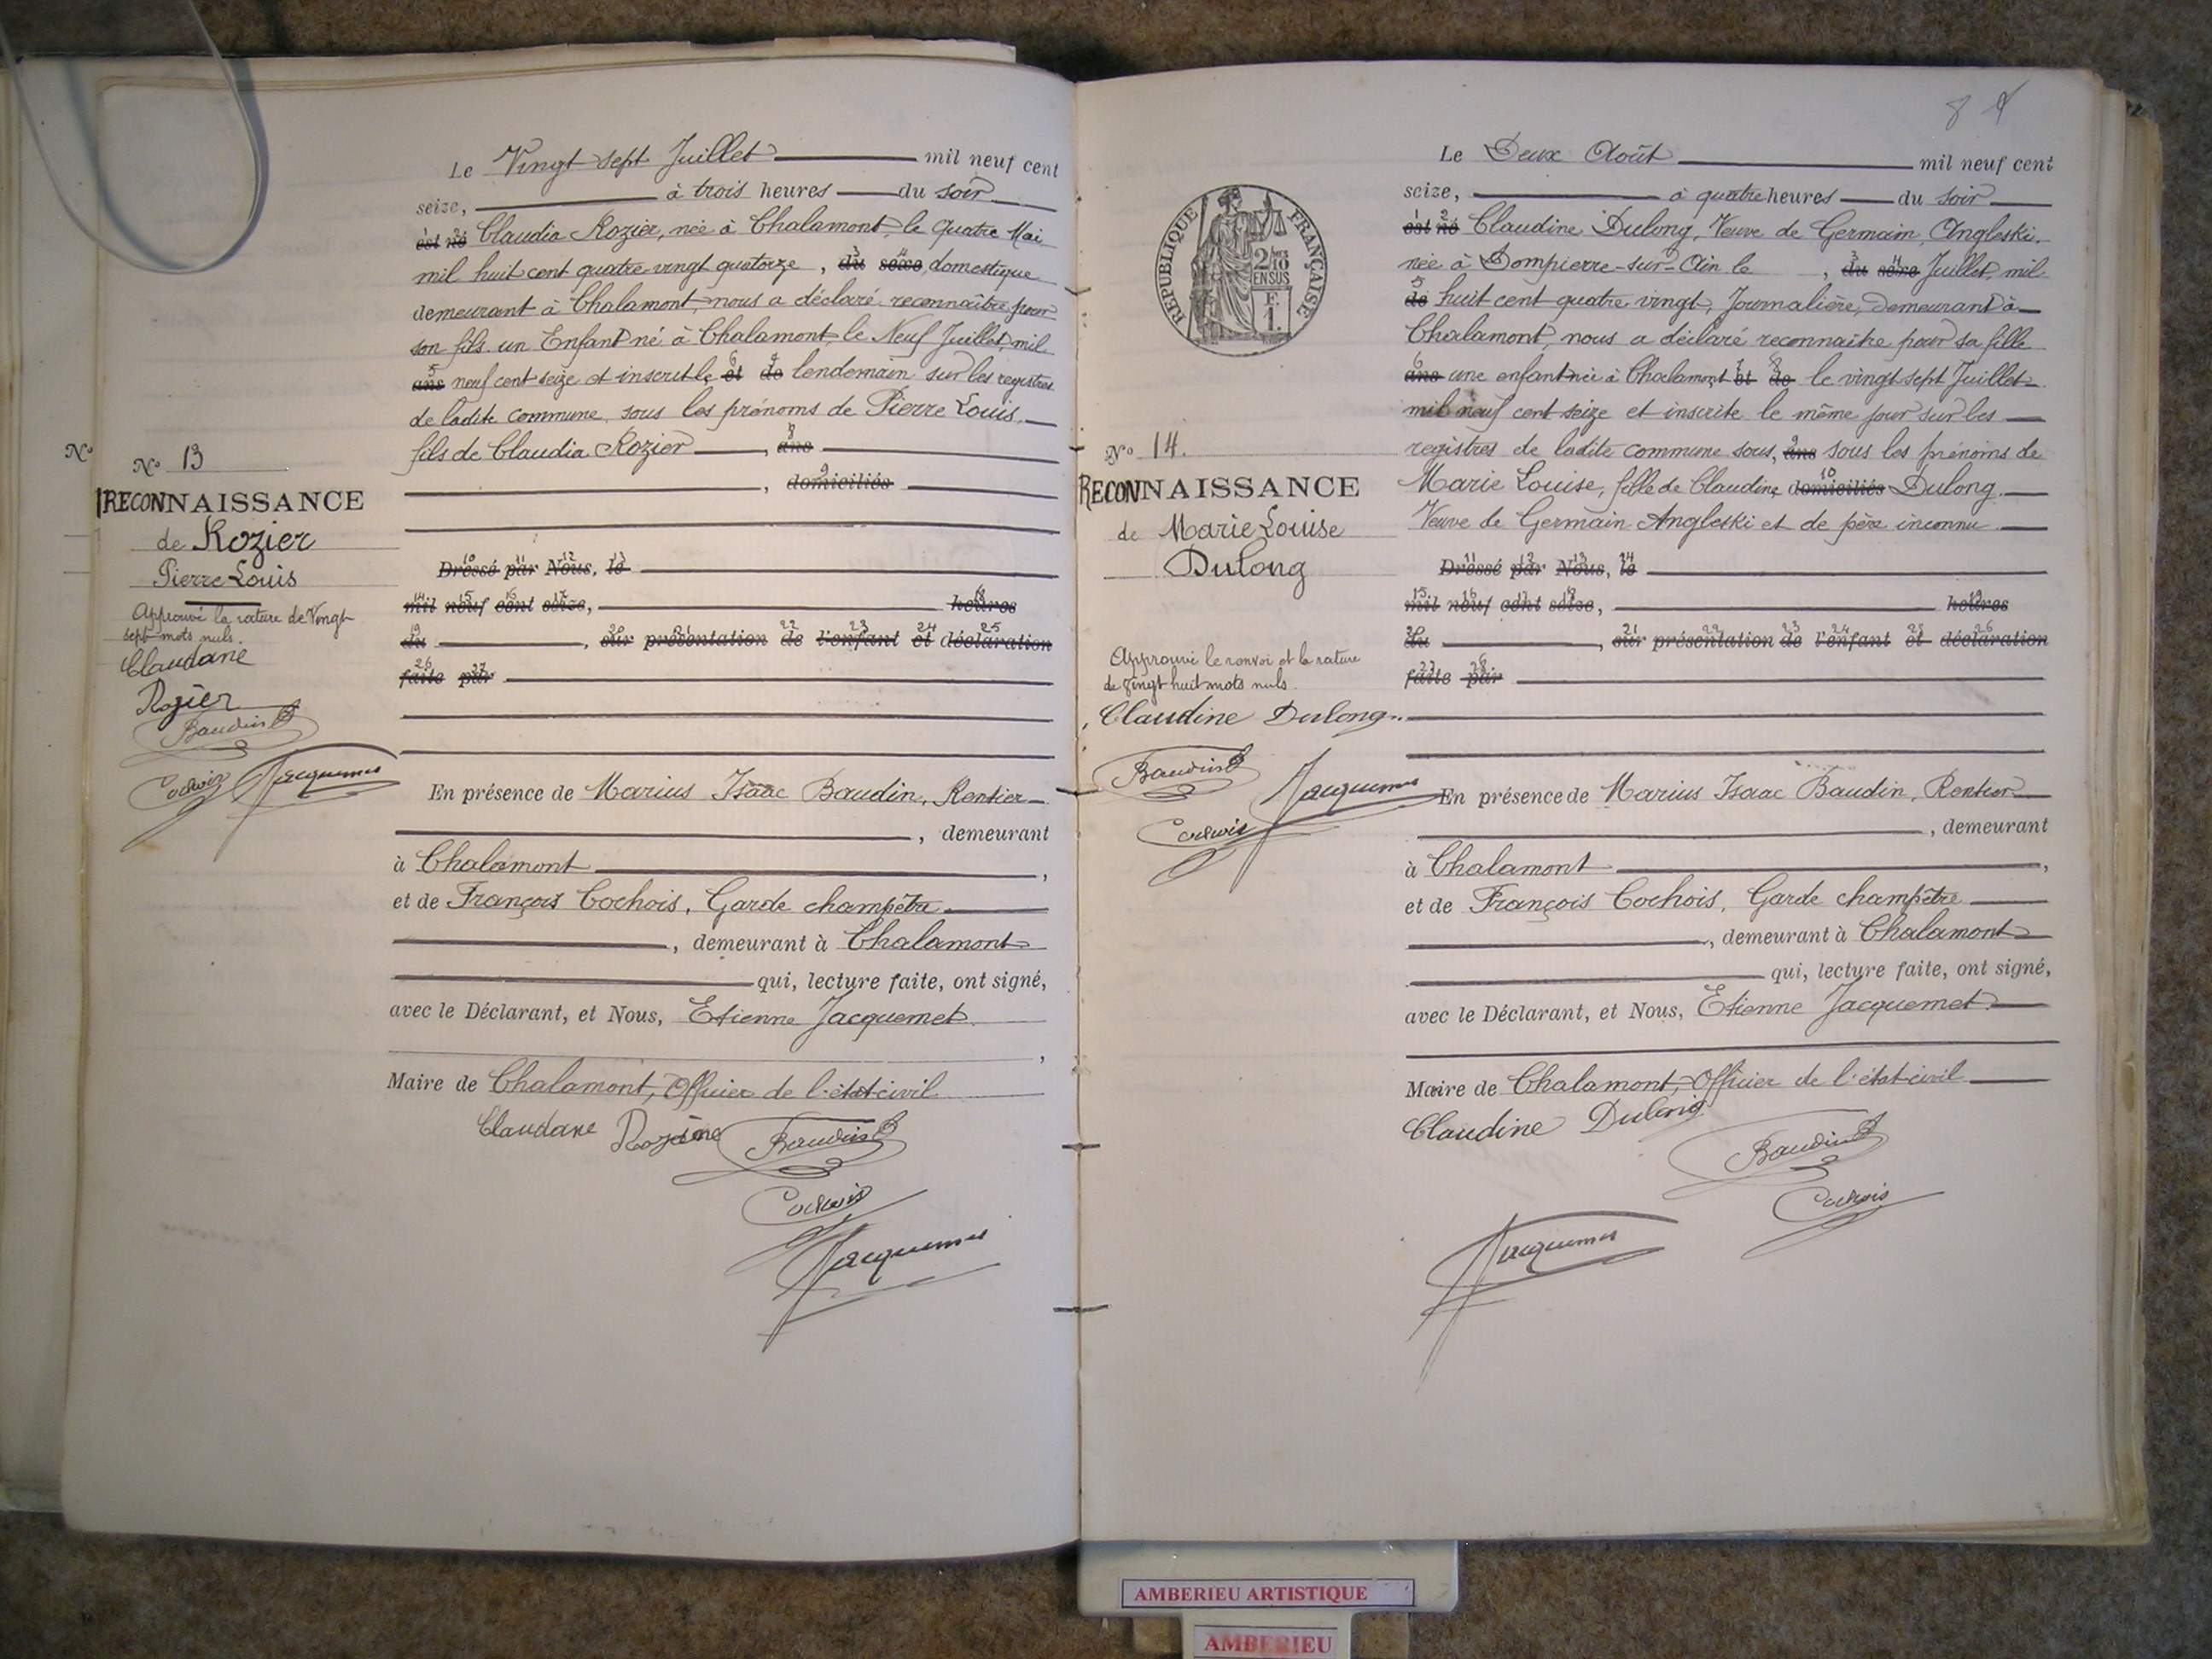 Le Vingt sept Juillet mil neuf cent
seize, à trois heures du soir
est né Claudia Rozier, née à Chalamont, le quatre Mai
mil huit cent quatre-vingt quatorze, du sexe domestique
demeurant à Chalamont, nous a déclaré reconnaître pour
son fils un Enfant né à Chalamont, le Neuf Juillet, mil
ans neuf cent seize et inscrit le et de lendemain sur les registres
de ladite commune sous les prénoms de Pierre Louis
fils de Claudia Rozier, ans
, domiciliés
Dressé par Nous, le
mil neuf cent seize, heures
du , sur présentation de l'enfant et déclaration
faite par
En présence de Marius Isaac Baudin, Rentier
, demeurant
à Chalamont,
et de François Cochois, Garde champêtre
, demeurant à Chalamont
qui, lecture faite, ont signé,
avec le Déclarant, et Nous, Etienne Jacquemet
,
Maire de Chalamont, Officier de l'état-civil
Claudane Baudin
Cochois
Jacquemet
No
No 13
RECONNAISSANCE
de Rozier
Pierre Louis
Approuvé la rature de Vingt
sept mots nuls.
Claudane
Rozier
Baudin
Cochois Jacquemet
8
Le Deux Août mil neuf cent
seize, à quatre heures du soir
est né Claudine Dulong, Veuve de Germain Angleski,
née à Dompierre-sur-Ain le , du sexe Juillet, mil
de huit cent quatre vingt, Journalière, demeurant à
Chalamont, nous a déclaré reconnaître pour sa fille
ans une enfant née à Chalamont et de le vingt sept Juillet
mil neuf cent seize et inscrite le même jour sur les
registres de ladite commune sous, ans sous les prénoms de
Marie Louise, fille de Claudine domiciliés Dulong
Veuve de Germain Angleski et de père inconnu
Dressé par Nous, le
mil neuf cent seize, heures
du , sur présentation de l'enfant et déclaration
faite par
En présence de Marius Isaac Baudin, Rentier
, demeurant
à Chalamont,
et de François Cochois, Garde champêtre
, demeurant à Chalamont
qui, lecture faite, ont signé,
avec le Déclarant, et Nous, Etienne Jacquemet
Maire de Chalamont, Officier de l'état-civil
Claudine Dulong
Baudin
Cochois
Jacquemet
RÉPUBLIQUE FRANÇAISE
2/10
EN SUS
F.
1.
No 14.
RECONNAISSANCE
de Marie Louise
Dulong
Approuvé le renvoi et la rature
de vingt huit mots nuls.
Claudine Dulong
Baudin
Jacquemet
Cochois
AMBERIEU ARTISTIQUE
AMBERIEU